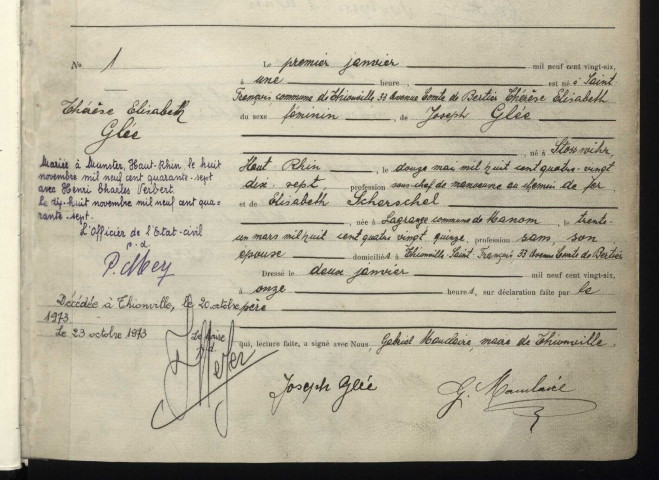 No 1
Thérèse Elisabeth
Glée
Mariée à Munster, Haut-Rhin, le huit
novembre mil neuf cent quarante-sept
avec Henri Charles Veibert.
Le dix-huit novembre mil neuf cent qua-
rante-sept.
L'Officier de l'Etat-civil
p.d.
P. Mey
Décédée à Thionville, le 20 octobre
1973.
Le 23 octobre 1973 Le Maire
p.d.
Le premier janvier mil neuf cent vingt-six,
à une heure est né à Saint
François commune de Thionville 53 Avenue Comte de Bertier Thérèse Elisabeth
du sexe féminin, de Joseph Glée
, né à Stosswihr,
Haut Rhin, le douze mai mil huit cent quatre-vingt
dix-sept profession sous-chef de manœuvre au chemin de fer
et de Elisabeth Scherschel
, née à Lagrange commune de Manom, le trente-
un mars mil huit cent quatre vingt quinze, profession sans, son
epouse domiciliés à Thionville Saint-François 53 Avenue Comte de Bertier
Dressé le deux janvier mil neuf cent vingt-six,
à onze heures, sur déclaration faite par le
père
qui, lecture faite, a signé avec Nous, Gabriel Mauclaire, maire de Thionville.
Joseph Glée
G. Mauclaire